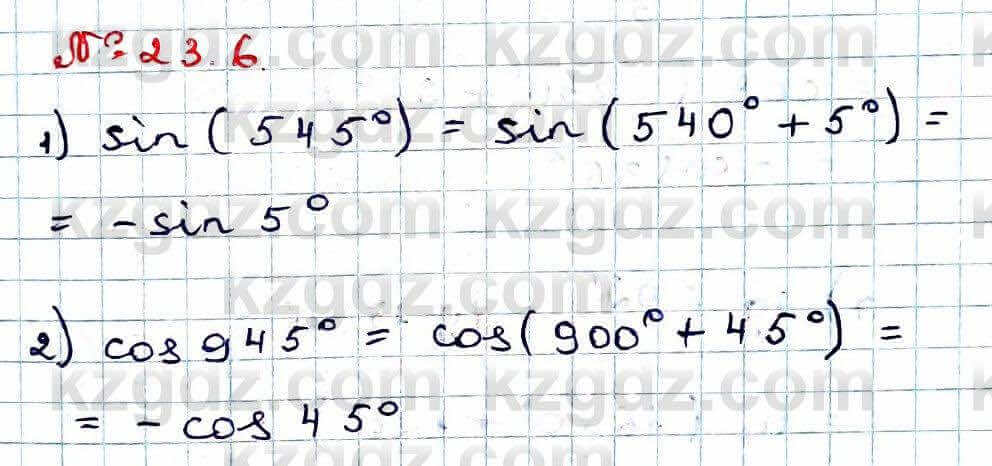 № 23.6.
1) sin(545°) = sin(540° + 5°) =
= -sin 5°
2) cos 945° = cos(900° + 45°) =
= -cos 45°
kzgdz.com kzgdz.com
kzgdz.com kzgdz.com
kzgdz.com kzgdz.com
kzgdz.com
kzgdz.com kzgdz.com